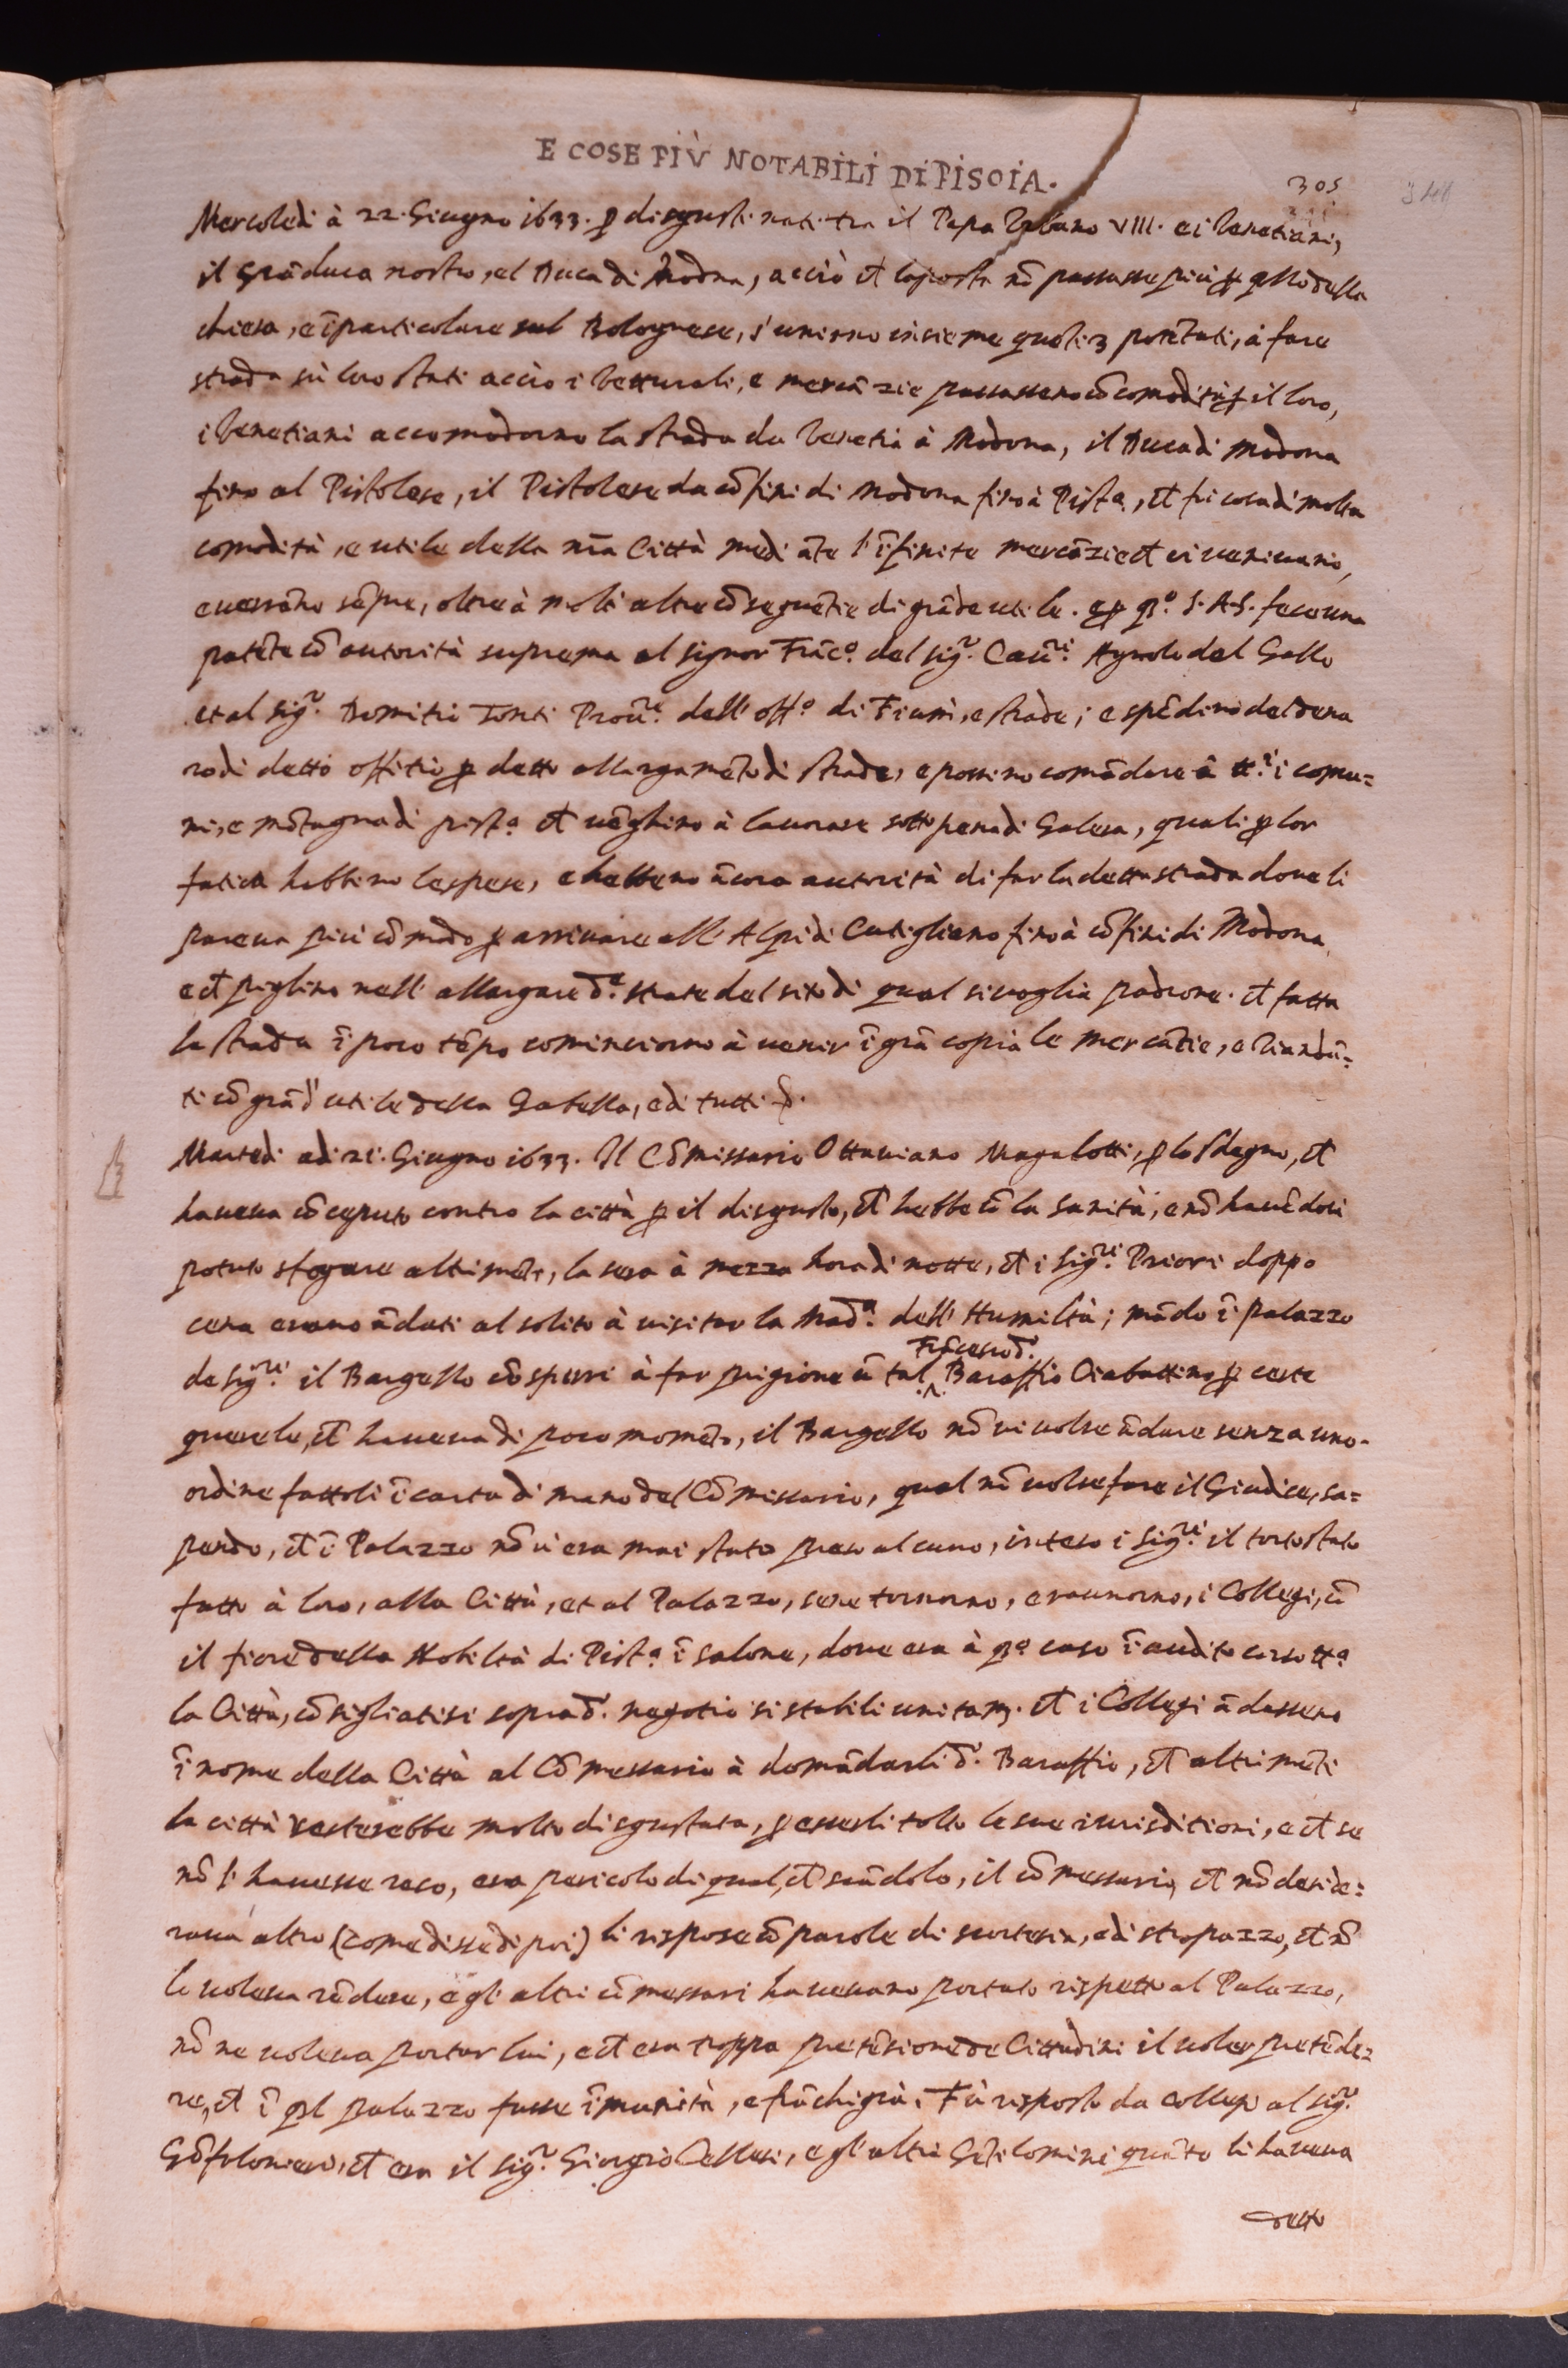 E COSE PIÙ NOTABILI DI PISOIA.
305
Mercoledi à 22. Giugno 1633. ꝑ disgusti nati tra il Papa Vrbano VIII. e i Venetiani,
il Grāduca nostro, e l Duca di Modna, acciò cħ la posta nō passasse più ꝑ qllo della
chiesa, e ī particolare sul Bolognese, s'unirno insieme questi 3 potētati, à fare
strada sù loro stati acciò i Vetturali, e mercāzie passassero cō comodità ꝑ il loro,
i Venetiani accomodorno la strada da Venetia à Modona, il Duca di Modona
fino al Pistolese, il Pistolese da cōfini di Modona fino à Pist.ª, cħ fù cosa di molta
comodità, e utile della nr̄a Città mediāte l'īfinite mercāzie cħ ci venivano,
e verrāno sēpre, oltre à molte altre cōseguētie di grāde utile. e ꝑ qs.º S. A. S. fece una
patēte cō autorità suprema al signor Frāc.º del sig.r Cau.ri Agnolo del Gallo
et al sig.r Domitio Tonti Prou.re dell'off.º di Fiumi, e strade; e spēdino del dena
ro di detto offitio ꝑ detto allargamēto di strade, e possino comādare à tt.i i comu=
ni, e mōtagna di pist.ª cħ vēghino à lavorare sotto pena di Galera, quali ꝑ lor
fatica habbino le spese, e hebbero ācora autorità di far la detta strada dove li
pareva più cōmodo ꝑ arrivare all'Alpi di Cutigliano fino à cōfini di Modona,
e cħ piglino nell'allargare d.e strate del sito di qual si voglia padrone. cħ fatta
la strada ī poco tēpo cominciorno à venir ī grā copia le mercātie, e Viandā=
ti cō grād'utile della Gabella, e di tutti
Martedi adi 21. Giugno 1633. Il Cōmissario Ottaviano Magalotti, ꝑ lo sdegno, cħ
haveva cōceputo contro la città ꝑ il disgusto, cħ hebbe cō la sanità, e nō havēdosi
potuto sfogare altrimēti, la sera à mezza hora di notte, cħ i sig.ri Priori doppo
cena erano ādati al solito à visitar la Mad.ª dell'Humiltà; mādò ī palazzo
de sig.ri il Bargello cō sbirri à far prigione ū tal Frācesco d.º Baroffio Ciabattino ꝑ certe
querele, cħ haveva di poco momēto, il Bargello nō vi volse ādare senza uno
ordine fattoli ī carta di mano del Cōmissario, qual nō volse fare il Giudice, sa=
pendo, cħ ī Palazzo nō vi era mai stato preso alcuno, inteso i sig.ri il torto stato
fatto à loro, alla Città, et al Palazzo, se ne tornorno, e raunorno, i Collegi, cō
il fiore della Nobiltà di Pist.ª ī salone, dove era à qs.º caso īaudito corso tt.ª
la Città, cōsigliatisi sopra d.º negotio si stabilì unitam. cħ i Collegi ādassero
ī nome della Città al Cōmessario à domādarli d.º Baroffio, cħ altrimēti
la città resterebbe molto disgustata, ꝑ esserli tolto le sue iurisditioni, e cħ se
nō li havesse reso, era pericolo di qualcħ scādolo, il cōmessario, cħ nō deside=
rava altro (come disse di poi) li rispose cō parole di scortesia, e di strapazzo, cħ nō
lo voleva rēdere, e gl'altri cōmessari havevano portato rispetto al Palazzo,
nō ne voleva portar lui, e cħ era troppa pretēsione de Cittadini il voler pretēde=
re, cħ ī ql palazzo fusse īmunità, e frāchigia. Fù risposto da Collegi al sig.r
Gōfaloniere, cħ era il sig.r Giorgio Cellesi, e gl'altri Gētilomini quāto li haveva
detto